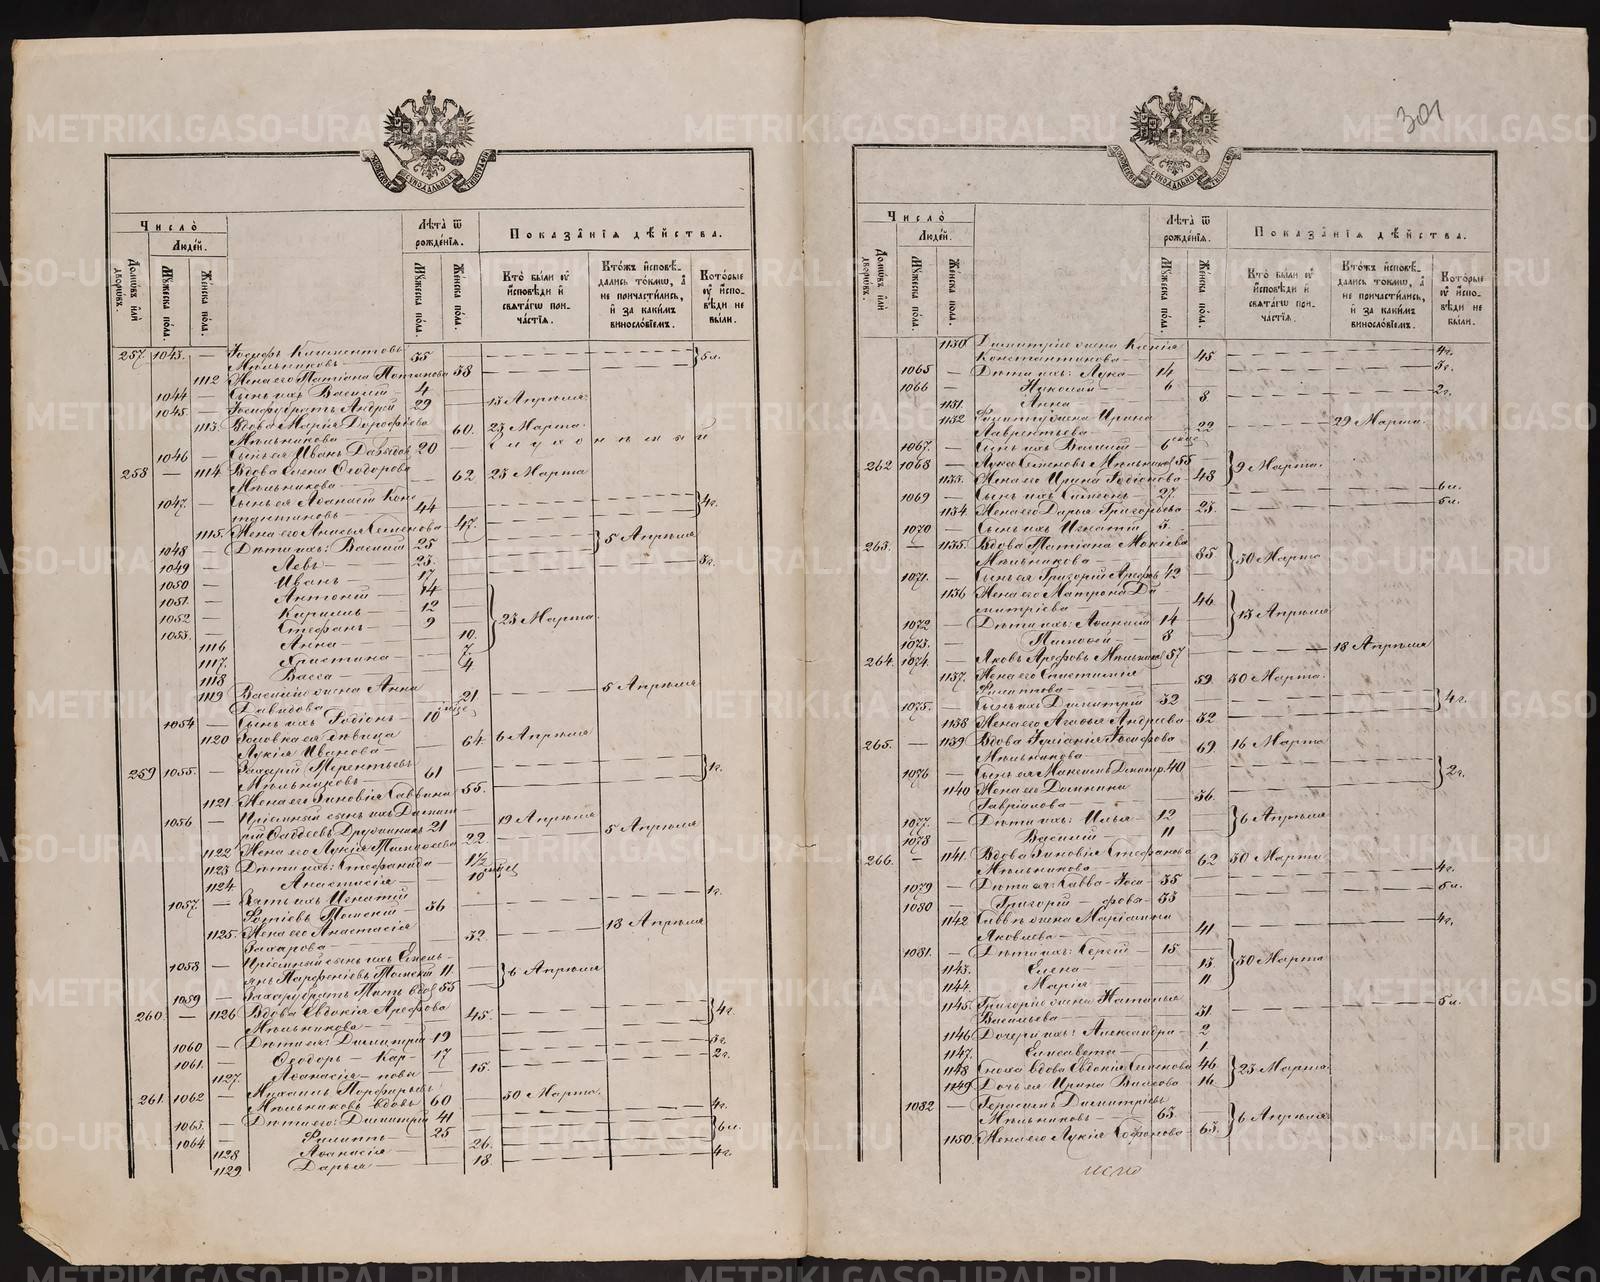 METRIKI.GASO-URAL.RU
301
МОСКОВСКОЙ СѴНОДАЛЬНОЙ ТИПОГРАФІИ
Число̀
Людéй.
Домѡвъ илѝ дворѡвъ.
Мꙋжеска пóла.
Жéнска пóла.
Лѣта̀ ѿ рождéнїѧ.
Мꙋжеска пóла.
Жéнска пóла.
Показáнїѧ дѣ́йства.
Ктò бы́ли ᲂу҆ и҆сповѣди и҆ свѧтáгѡ причáстїѧ.
Ктóжъ и҆сповѣдались тóкмѡ, а҆ не причасти́лись, и҆ за каки́мъ винослóвїемъ.
Котóрые ᲂу҆ и҆сповѣди не бы́ли.
257. 1043. — Іосифъ Климентовъ 55
Мѣльниковъ — } 5 л.
1112 Жена его Татіана Потапова 58
1044 — Сынъ ихъ Василій — 4
1045. — Іосифу братъ Андрей 29 — 13 Апрѣля.
1113. Вдова Марія Дорофѣева
Мѣльникова — 60. 25 Марта.
1046 — Сынъ ея Иванъ Давыдов 20 — глухонѣмый
258 — 1114. Вдова Елена Ѳеодорова
Мѣльникова — 62 25 Марта
1047. — Сынъ ея Аѳанасій Конс
тантиновъ — 44 } 4 г.
1115. Жена его Анисья Семенова — 47.
1048 — Дѣти ихъ: Василій 25 } 5 Апрѣля
1049 — Левъ — 23. 3 г.
1050 — Иванъ — 17
1051. — Антоній — 14
1052 — Кириллъ — 12
1053. — Стефанъ — 9 } 25 Марта.
1116 Анна — 10.
1117. Христина — 7.
1118 Васса — 4
1119 Василію жена Анна
Давидова — 21 5 Апрѣля
1054 — Сынъ ихъ Родіонъ — 10 мѣс.
1120 Золовка ея дѣвица
Лукія Иванова — 64. 6 Апрѣля
259 1055. — Захарій Терентьевъ
Мѣльниковъ — 61 } 1 г.
1121. Жена его Зиновія Саввина 55.
1056 — Пріемный сынъ ихъ Димит
рій Ѳаддеевъ Дружининъ 21 — 19 Апрѣля
1122 Жена его Лукія Тимоѳеева 22. 5 Апрѣля
1123 Дѣти ихъ: Стефанида — 1½
1124. Анастасія — 10 мѣс.
1057. — Зять ихъ Игнатій 1 г.
Фотіевъ 36
1125. Жена его Анастасія
Захарова — 32. 18 Апрѣля
1058 — Пріемный сынъ ихъ Емель-
янъ Парѳеніевъ 11. } 6 Апрѣля
1059 — Захару братъ 55
260. — 1126 Вдова Евдокія Арефова
Мѣльникова — 45. } 4 г.
1060 — Дѣти ея: Димитрій 19 3 г.
1061. — Ѳеодоръ — Кар- 17 2 г.
1127. Аѳанасія — пова 15.
261. 1062 — Михаилъ Порфирьевъ
Мѣльниковъ вдовъ 60 — 30 Марта.
1063. — Дѣти его: Димитрій 41 4 г.
1064 — Филиппъ — 25 } 6 л.
1128 Аѳанасія — 26.
1129 Дарья — 18 4 г.
1130 Димитрію жена Ксенія
Константинова — 45 4 г.
1065 — Дѣти ихъ: Лука — 14 3 г.
1066 — Николай — 6 2 г.
1131. Анна — 8
1132 Филиппу жена Ирина
Лаврентьева — 22 29 Марта.
1067. — Сынъ ихъ Василій — 6 мѣс.
262 1068 — Лука Семеновъ Мѣльников 55 } 9 Марта.
1133. Жена его Ирина Родіонова — 48
1069 — Сынъ ихъ Симеонъ — 27. 6 л.
1134. Жена его Дарья Григорьева — 23. 5 л.
1070 — Сынъ ихъ Игнатій — 3.
263. — 1135. Вдова Татіана Мокіева
Мѣльникова — 85 } 30 Марта
1071. — Сынъ ея Григорій Арефов 42
1136 Жена его Матрона Ди
митріева — 46. } 13 Апрѣля
1072 — Дѣти ихъ: Аѳанасій 14
1073. — Тимоѳей — 8
264. 1074. — Яковъ Арефовъ Мѣльников 57 18 Апрѣля
1137. Жена его
Филиппова — 59. 30 Марта.
1075. — Сынъ ихъ Димитрій 32 } 4 г.
1138 Жена его Агаѳья Андреева 32
265. — 1139 Вдова Іуліанія Іосифова
Мѣльникова 69 16 Марта
1076 — Сынъ ея Максимъ Димитр. 40 } 2 г.
1140 Жена его Домнина
Гавріилова — 36.
1077 — Дѣти ихъ: Илья — 12 } 6 Апрѣля
1078 — Василій — 11
266. — 1141. Вдова Зиновія Стефанова
Мѣльникова — 62 30 Марта
1079 — Дѣти ея: Савва — Іоси- 35 4 г.
1080 — Григорій — фовы — 33 5 л.
1142 Саввѣ жена Маріамна
Яковлева — 41 4 г.
1081. — Дѣти ихъ: Сергѣй — 15
1143. Елена — 13 } 30 Марта
1144. Марія 11
1145. Григорію жена Наталья
Васильева — 31 5 л.
1146 Дочери ихъ: Александра — 2
1147. Елисавета — 1.
1148 Сноха вдова Евдокія Семенова 46 } 25 Марта.
1149 Дочь ея Ирина 16
1082 — Герасимъ Димитріевъ
Мѣльниковъ — 65. } 6 Апрѣля.
1150. Жена его Лукія Софонова — 65.